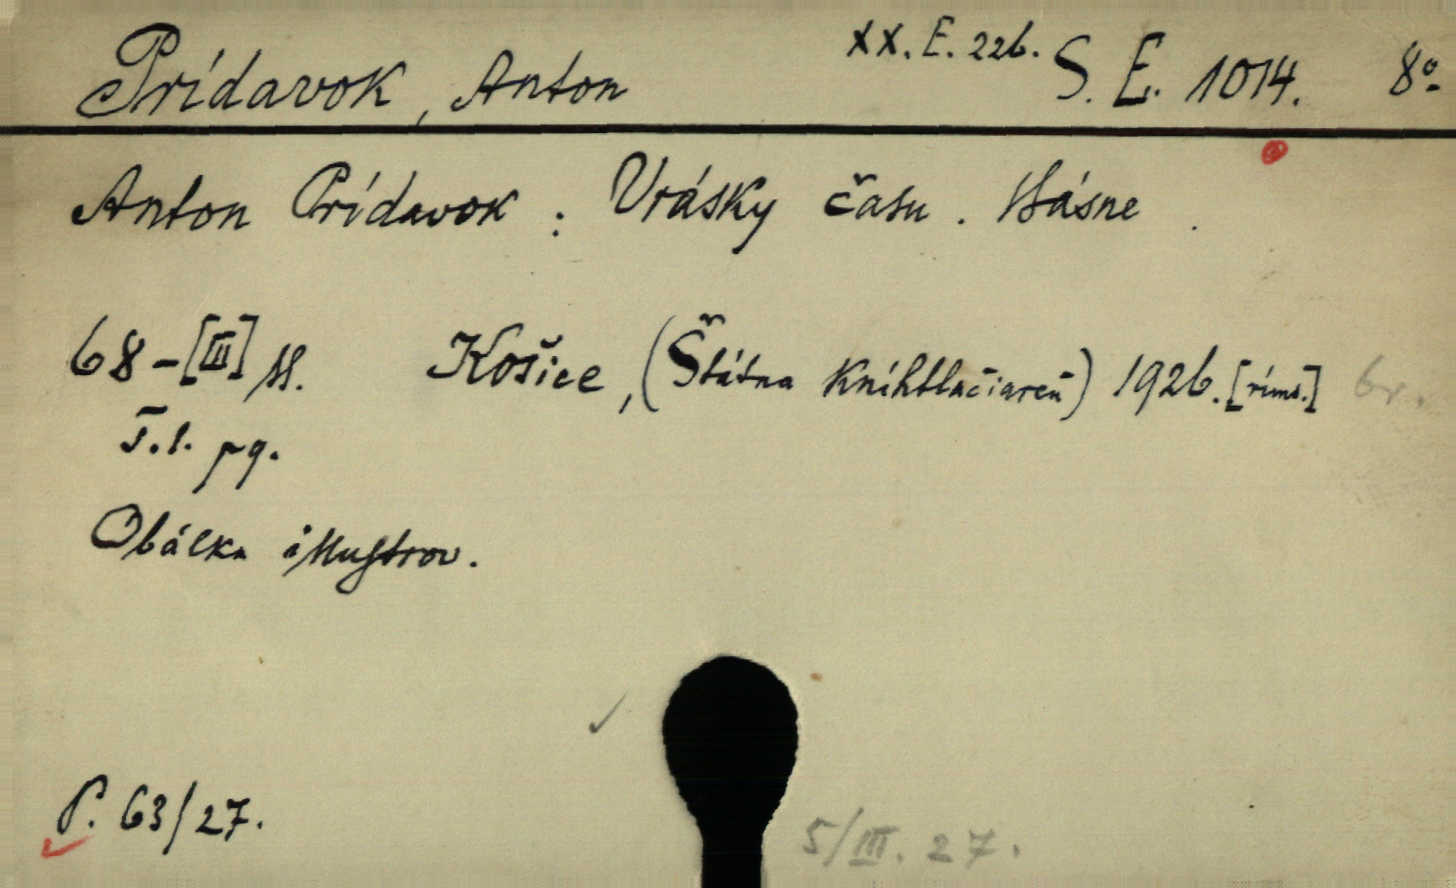 Prídavok, Anton XX. E. 226. S. E. 1014. 8°
Anton Prídavok : Vrásky času. Básne.
68-[III] s. Košice, (Štátna kníhtlačiareň) 1926. [ríms.] br.
T. l. pg.
Obálka illustrov.
P. 63/27.
5/III. 27.